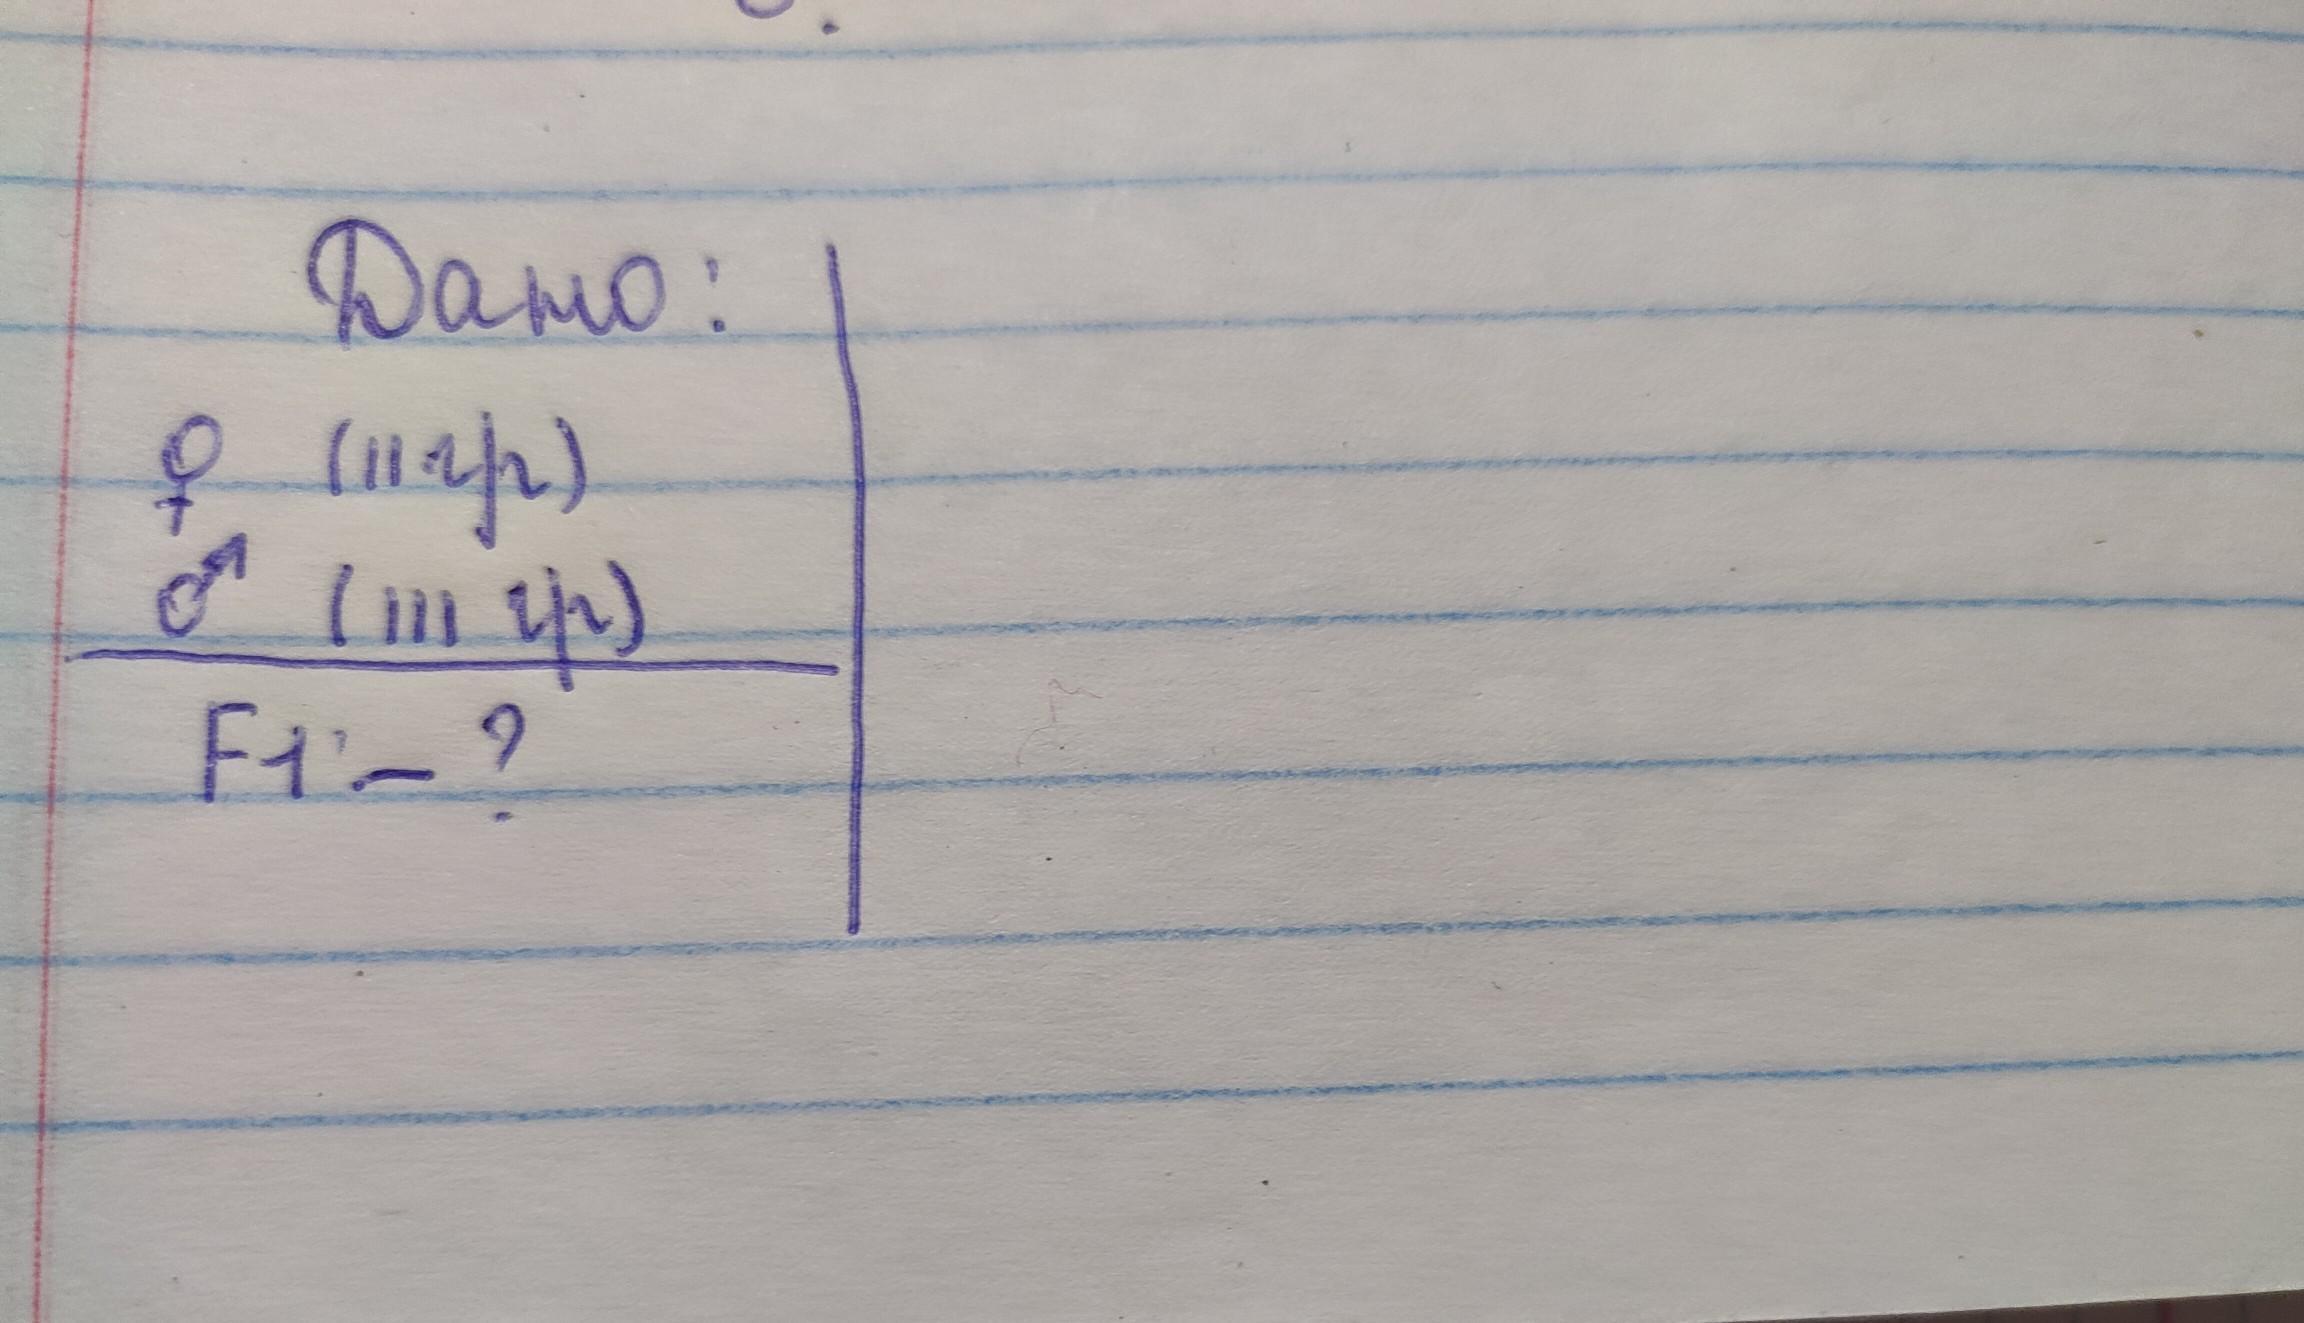 Дано:
♀ (II гр)
♂ (III гр)
F1: – ?